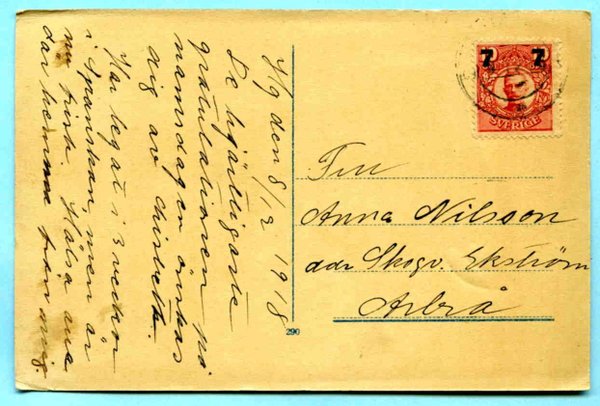 Hg den 8/12 1918
De hjärtligaste
gratulationer på
namnsdagen önskas
dig av Lisbeth.
Har legat i 3 veckor
i spanskan, men är
nu frisk. Hälsa alla
där hemma från mig.
7 7
SVERIGE
Till
Anna Nilsson
adr Skogv. Ekström
Arbrå
290